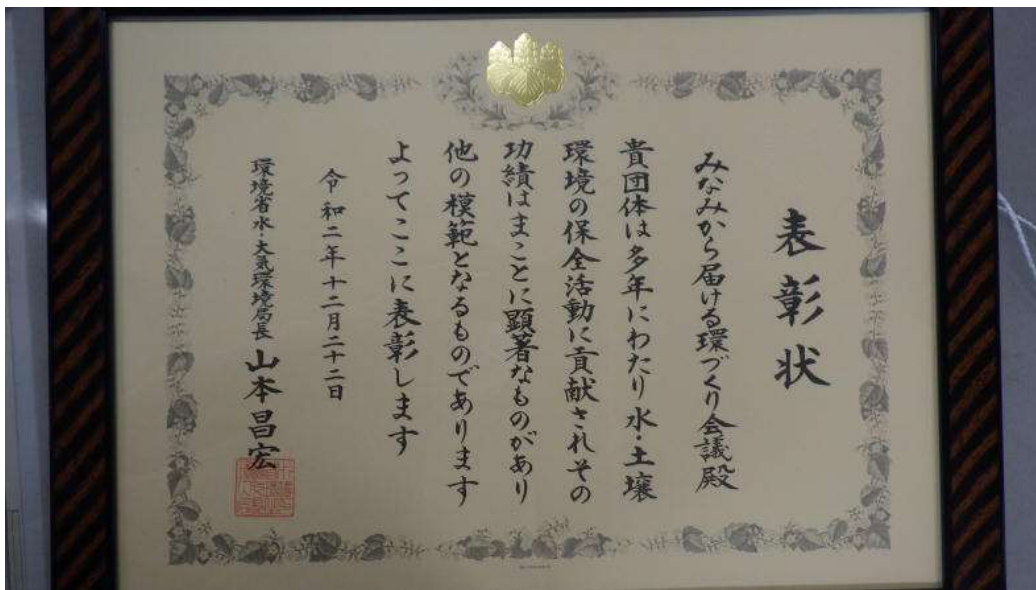 表彰状
みなみから届ける環づくり会議殿
貴団体は多年にわたり水・土壌
環境の保全活動に貢献されその
功績はまことに顕著なものがあり
他の模範となるものであります
よってここに表彰します
令和二年十二月二十二日
環境省水・大気環境局長 山本昌宏